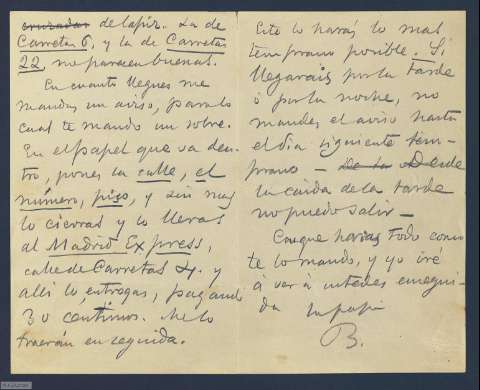 cruzadas de lapiz. La de
Carretas 6, y la de Carretas
22, no parecen buenas.
En cuanto llegues me
mandas un aviso, para lo
cual te mando un sobre.
En el papel que va den-
tro, pones la calle, el
número, piso, y sin mas
lo cierras y lo llevas
al Madrid Express,
calle de Carretas 4. y
allí lo entregas, pagando
30 centimos. Me lo
traerán en seguida.
Esto lo harás lo mas
temprano posible. Si
llegarais por la tarde
ó por la noche, no
mandes el aviso hasta
el dia siguiente tem-
prano — De la Desde
la caida de la tarde
no puedo salir —
Conque harás todo como
te lo mando, y yo iré
a ver á ustedes enseguí-
da tu papá
B.